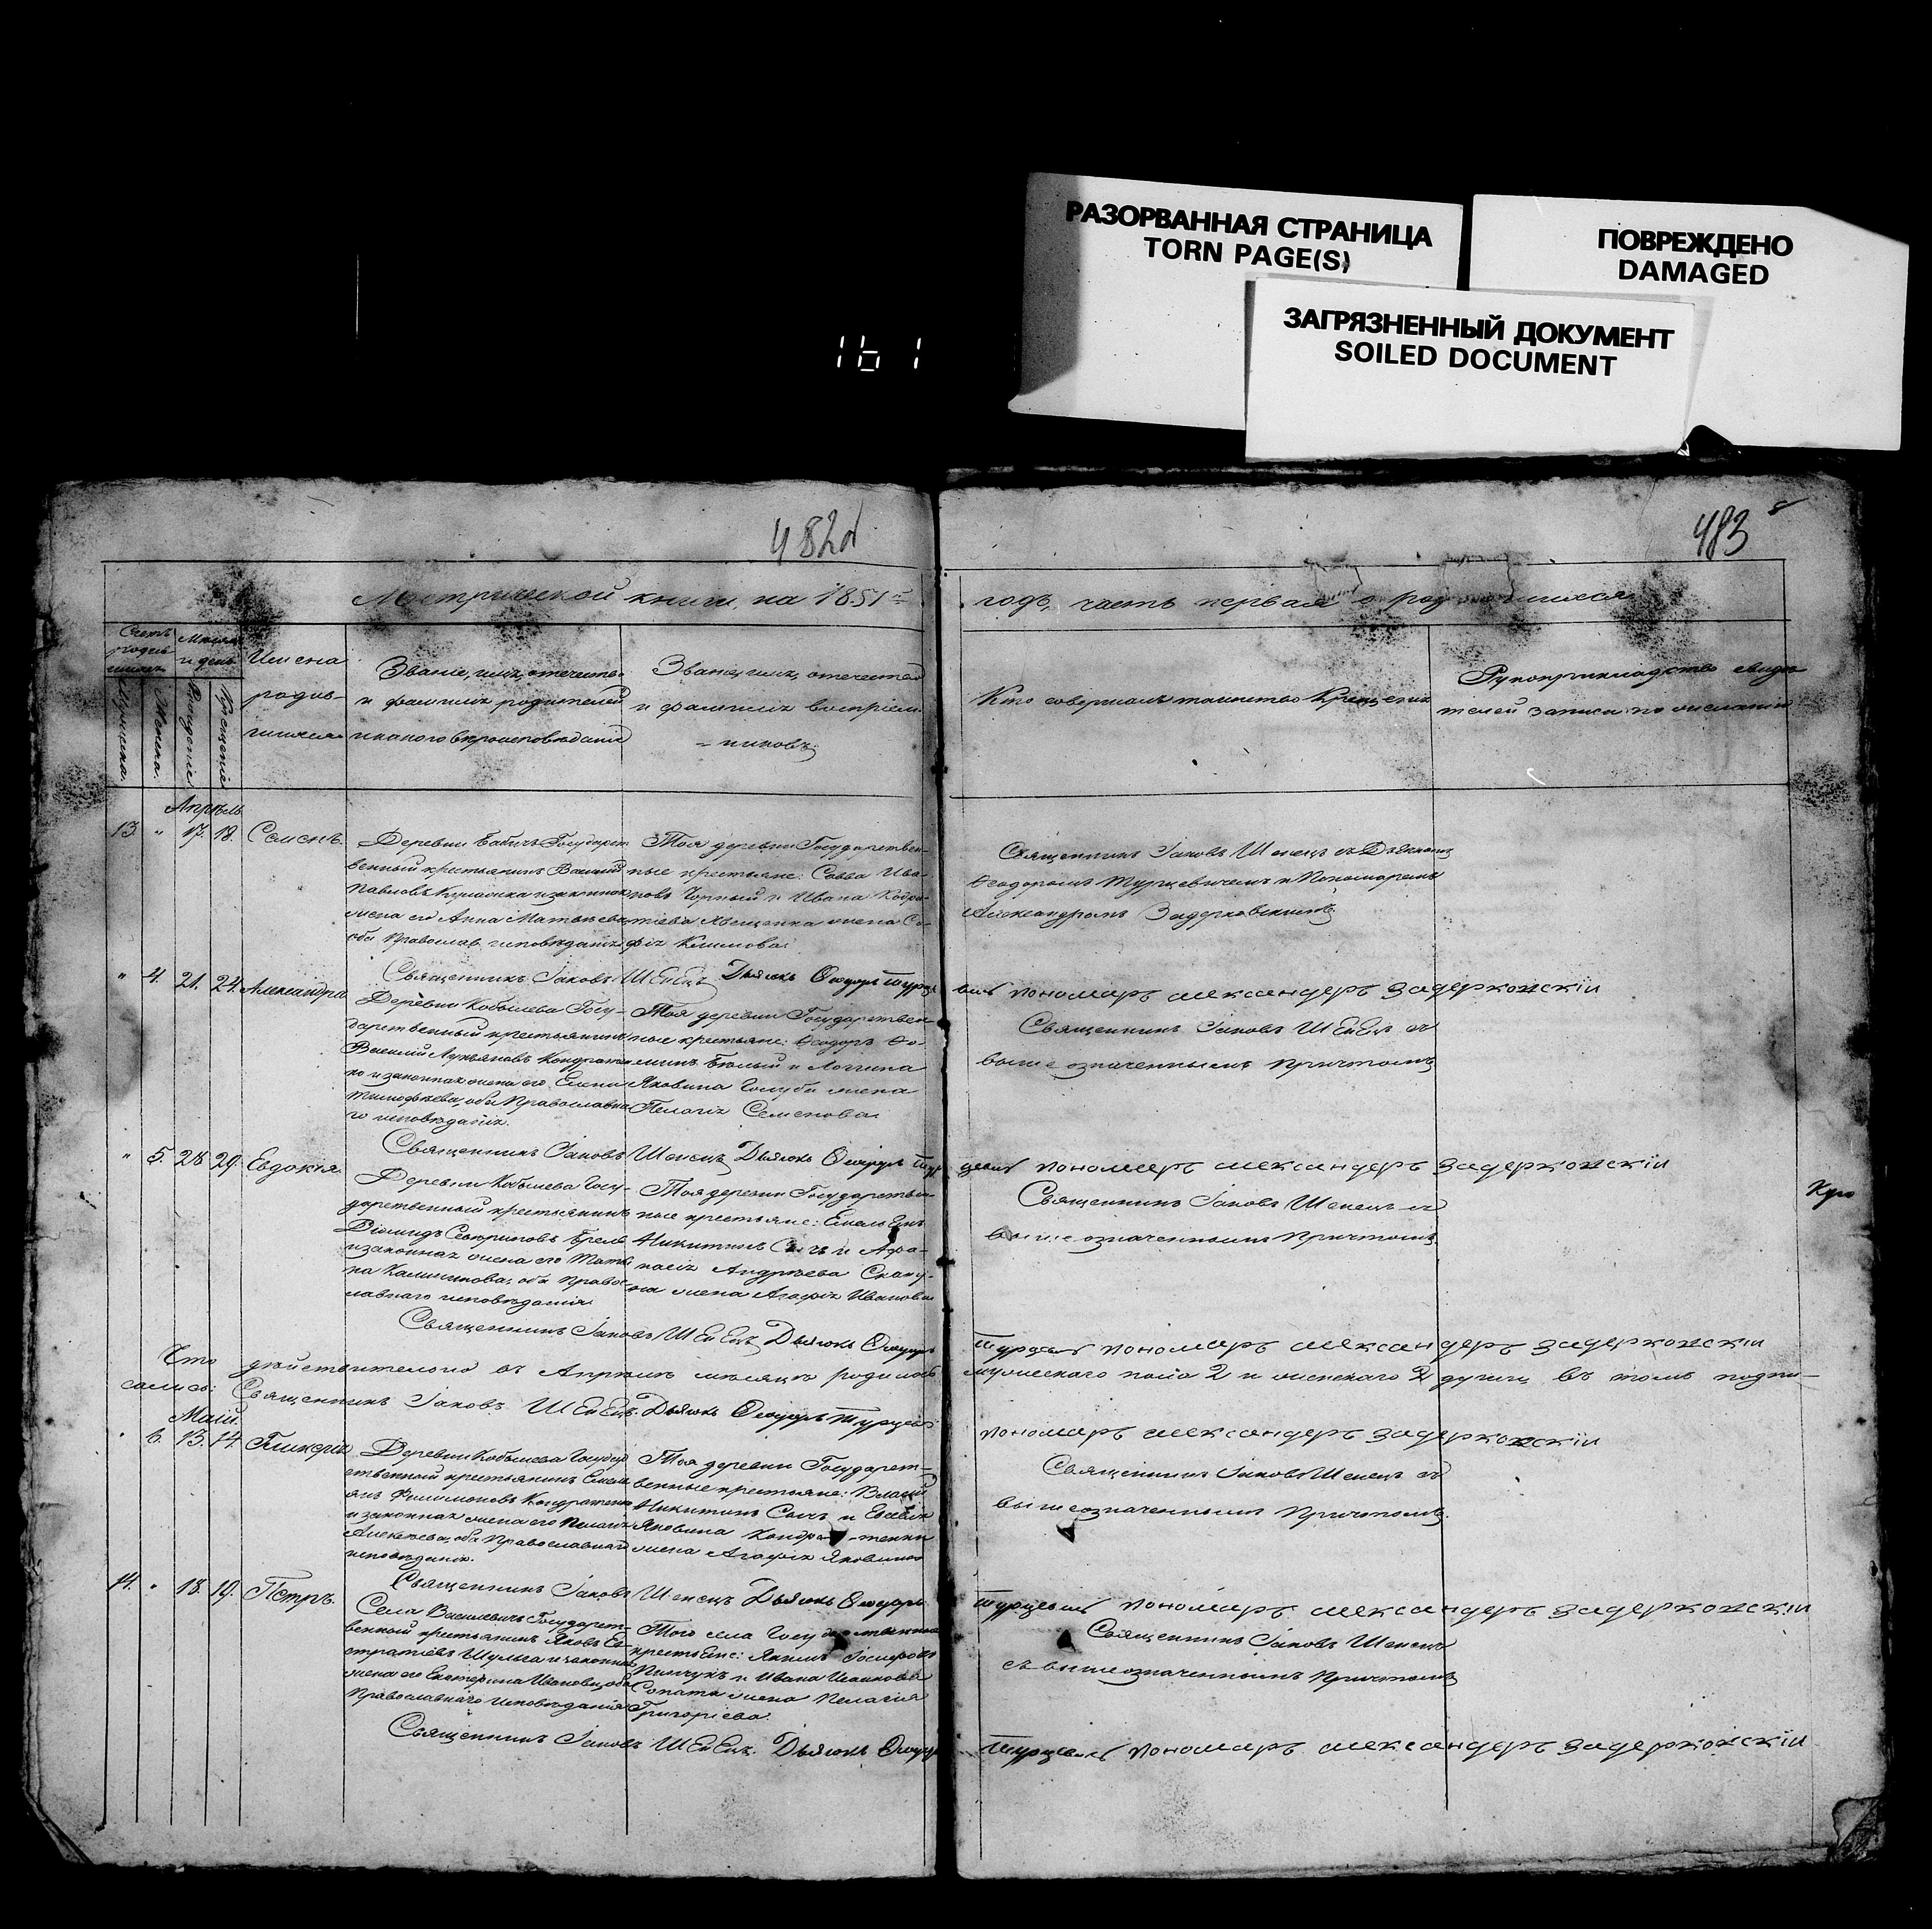 РАЗОРВАННАЯ СТРАНИЦА
TORN PAGE(S)
ПОВРЕЖДЕНО
DAMAGED
ЗАГРЯЗНЕННЫЙ ДОКУМЕНТ
SOILED DOCUMENT
161
482
483
Метрической книги, на 1851й
годъ, часть первая о родившихся
Счетъ родив-шихся
Мѣсяцъ и день
Мужеска.
Женска.
Рожденіе.
Крещеніе.
Имена
родив-
шихся
Званіе, имя, отечество
и фамилія родителей
и какого вѣроисповѣданія
Званіе, имя, отечество
и фамилія воспріем-
-никовъ
Кто совершалъ таинство Крещенія
Рукоприкладство свидѣ-
телей записи по желанію
Апрѣль
13. " 17. 18. Семенъ.
Деревни Бабичъ Государст
венный крестьянинъ Василій
Павловъ и законная
жена его Анна Матвѣева
оба Православ. исповѣданія
Тоя деревни Государствен-
ные крестьяне: Савва Ива-
новъ Чорный и Ивана
жена Со-
фія Климова.
Священникъ Іаковъ Шенецъ съ Дьячкомъ
Ѳеодоромъ Турцевичемъ и Пономаремъ
Александромъ Задерковскимъ
Священникъ Іаковъ Шенецъ Дьячокъ Ѳеодоръ Турце
вичъ пономаръ александеръ задерковскіи
" 4. 21. 24. Александра
Деревни Кобылева Госу-
дарственный крестьянинъ
Василій Лукьяновъ Кондратен
ко и законная жена его Елена
Тимофѣева, оба Православна
го исповѣданія.
Тоя деревни Государствен
ные крестьяне: Ѳеодоръ Ѳо-
минъ Бѣлый и Логгина
Яковина Голуба жена
Пелагія Семенова.
Священникъ Іаковъ Шенецъ съ
выше означеннымъ Причтомъ
Священникъ Іаковъ Шенецъ Дьячокъ Ѳеодоръ Тур
цевичъ пономаръ александеръ задерковскіи
" 5. 28. 29. Евдокія.
Деревни Кобылева Госу-
дарственный крестьянинъ
Діомидъ
и законная жена его Татья
на Калиникова, оба Право-
славнаго исповѣданія.
Тоя деревни Государствен-
ные крестьяне: Емельянъ
Никитинъ Сычъ и Афа-
насія Андрѣева Скаку-
на жена Агафія Иванова
Священникъ Іаковъ Шенецъ съ
выше означеннымъ Причтомъ.
Священникъ Іаковъ Шенецъ Дьячокъ Ѳеодоръ
Турцевичъ пономаръ александеръ задерковскіи
Что дѣйствительно въ Апрѣлѣ мѣсяцѣ родилось
мужескаго пола 2 и женскаго 2 душъ, въ томъ подпи-
сались: Священникъ Іаковъ Шенецъ. Дьячокъ Ѳеодоръ Турцевичъ
пономаръ александеръ задерковскіи
Маій.
" 6. 13. 14. Гликерія
Деревни Кобылева Государ
ственный крестьянинъ Емель
янъ Филимоновъ Кондратенко
и законная жена его Пелагія
Алексѣева, оба Православнаго
исповѣданія.
Тоя деревни Государст-
венные крестьяне: Власій
Никитинъ Сычъ и Евсѣвія
Яковина Кондратенки
жена Агафія Яковина
Священникъ Іаковъ Шенецъ съ
вышеозначеннымъ Причтомъ.
Священникъ Іаковъ Шенецъ Дьячокъ Ѳеодоръ
Турцевичъ пономаръ александеръ задерковскіи
14. " 18. 19. Петръ.
Села Василевичъ Государст-
венный крестьянинъ Яковъ Ев-
стратіевъ Шульга и законная
жена его Екатерина Иванова, оба
Православнаго исповѣданія
Того села Государственные
крестьяне: Якимъ Іосифовъ
Пинчукъ и Ивана Исаакова
жена Пелагія
Григоріева.
Священникъ Іаковъ Шенецъ
съ вышеозначеннымъ Причтомъ
Священникъ Іаковъ Шенецъ. Дьячокъ Ѳеодоръ
Турцевичъ пономаръ александеръ задерковскіи